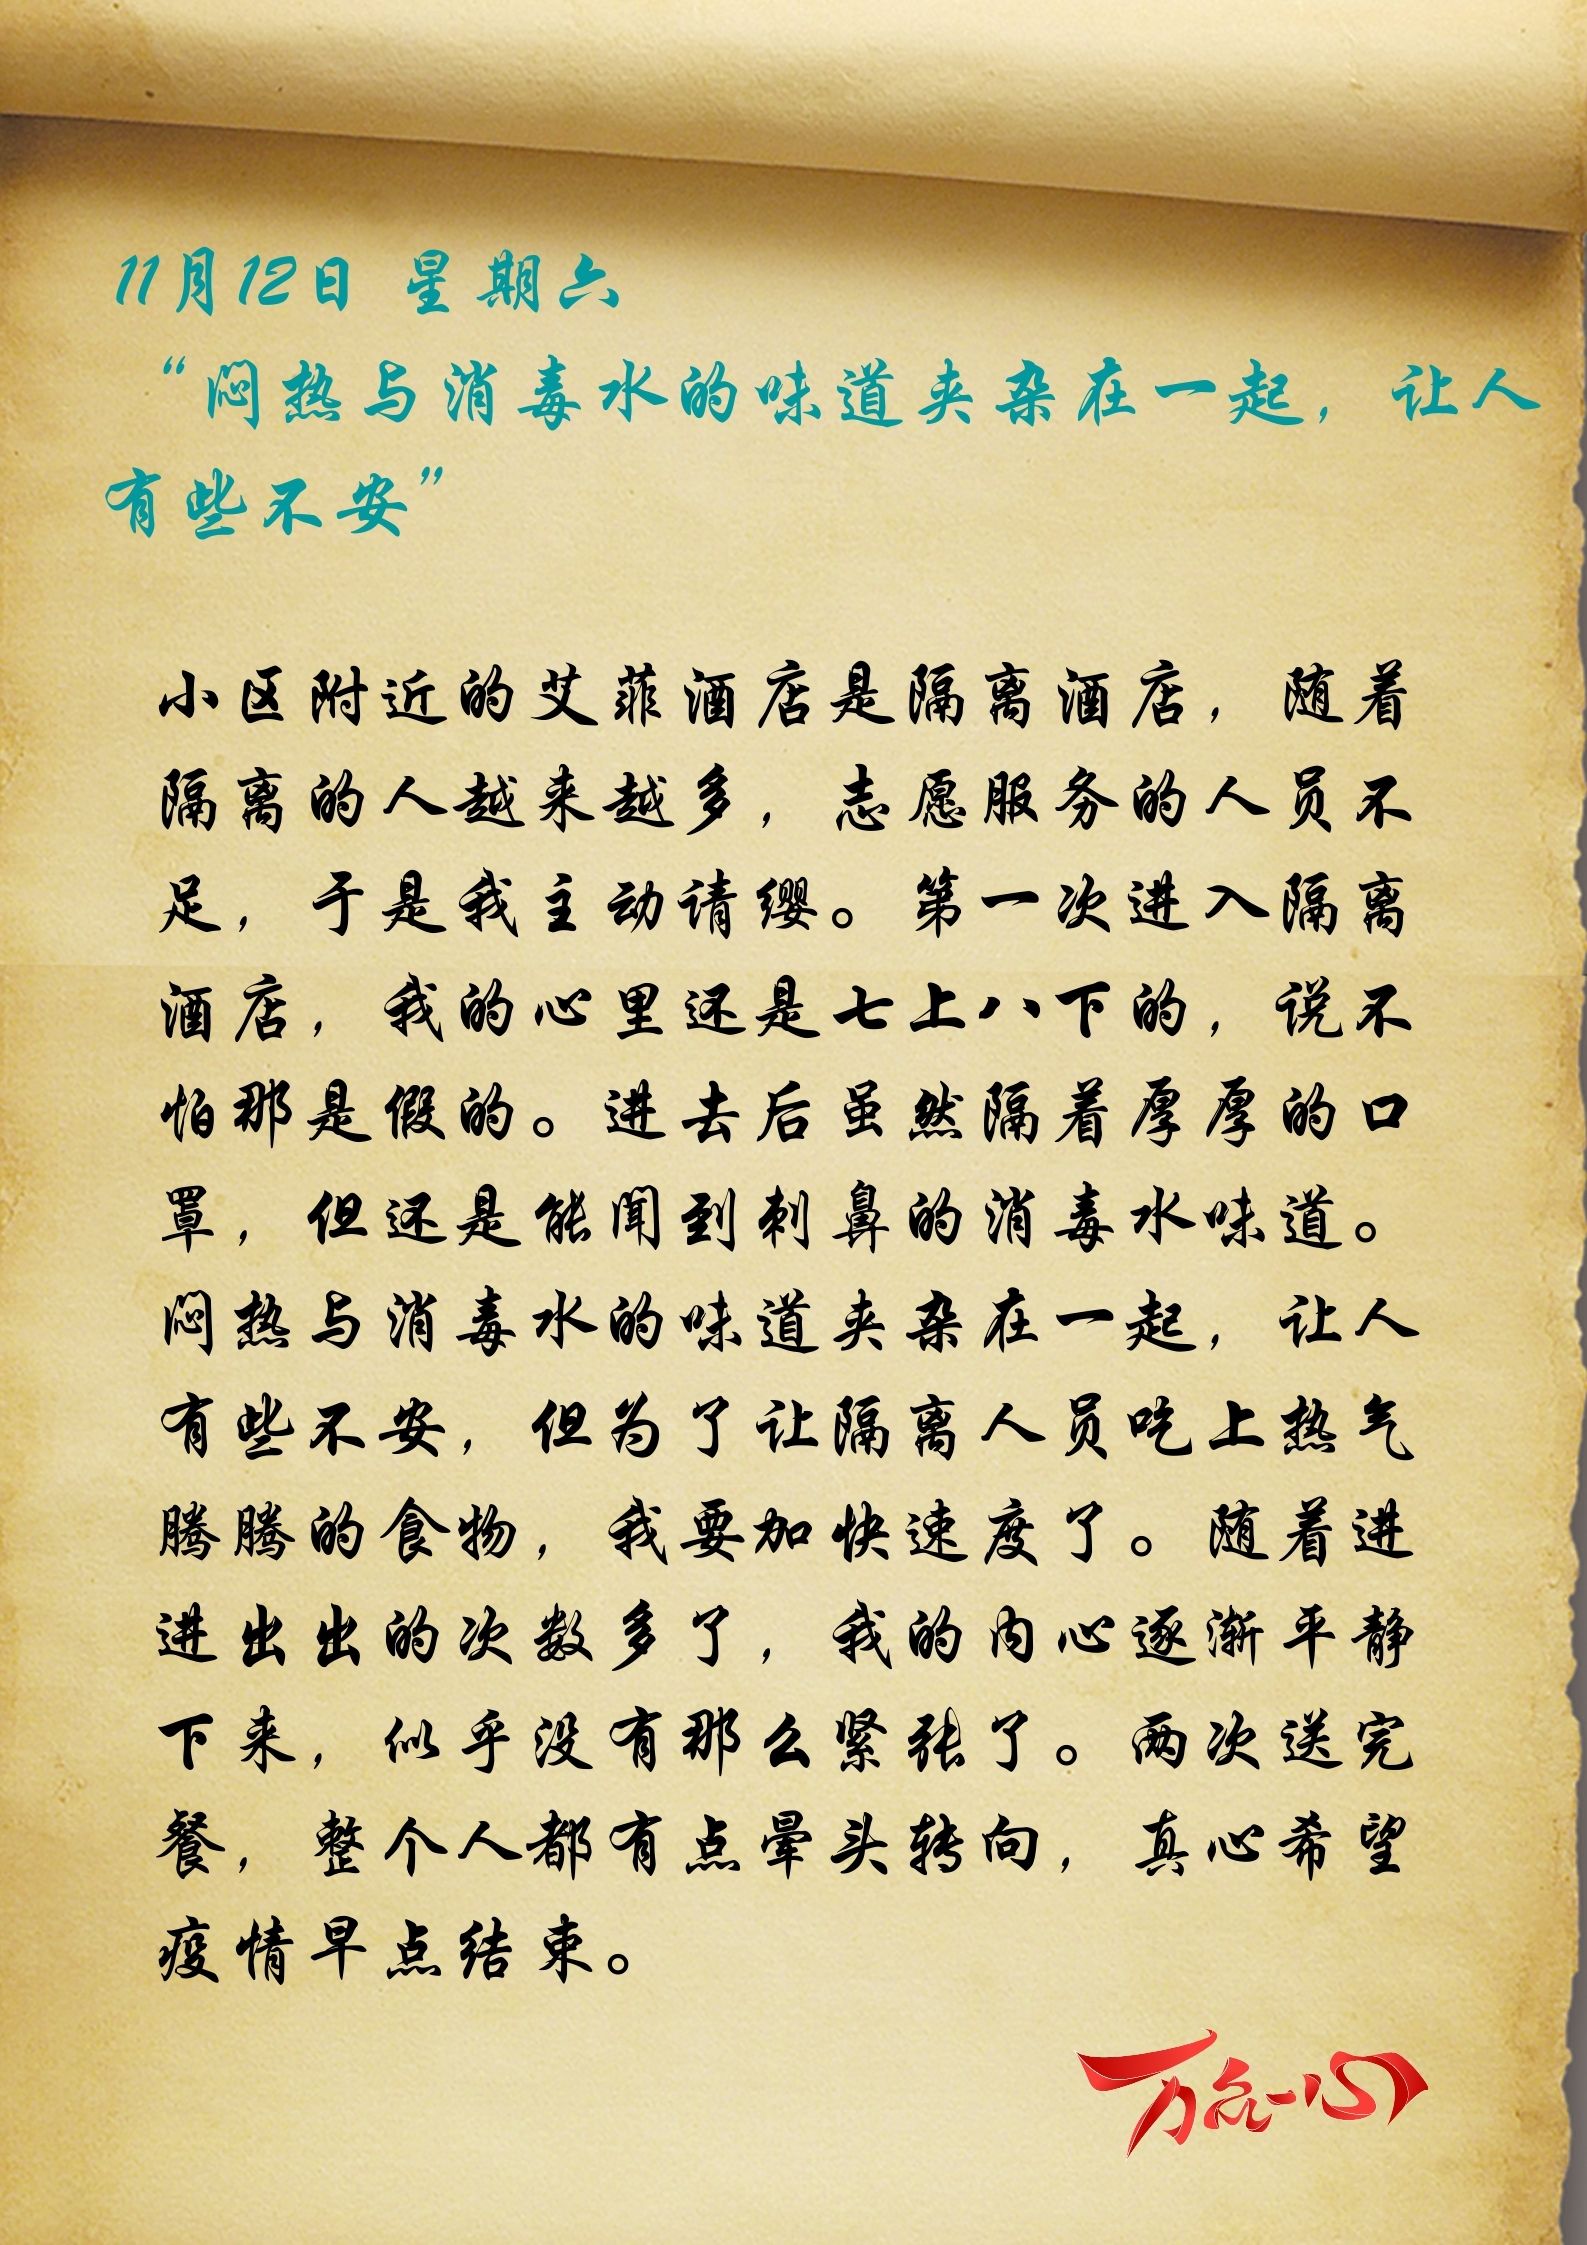 11月12日 星期六
“闷热与消毒水的味道夹杂在一起，让人
有些不安”
小区附近的艾菲酒店是隔离酒店，随着
隔离的人越来越多，志愿服务的人员不
足，于是我主动请缨。第一次进入隔离
酒店，我的心里还是七上八下的，说不
怕那是假的。进去后虽然隔着厚厚的口
罩，但还是能闻到刺鼻的消毒水味道。
闷热与消毒水的味道夹杂在一起，让人
有些不安，但为了让隔离人员吃上热气
腾腾的食物，我要加快速度了。随着进
进出出的次数多了，我的内心逐渐平静
下来，似乎没有那么紧张了。两次送完
餐，整个人都有点晕头转向，真心希望
疫情早点结束。
万众一心